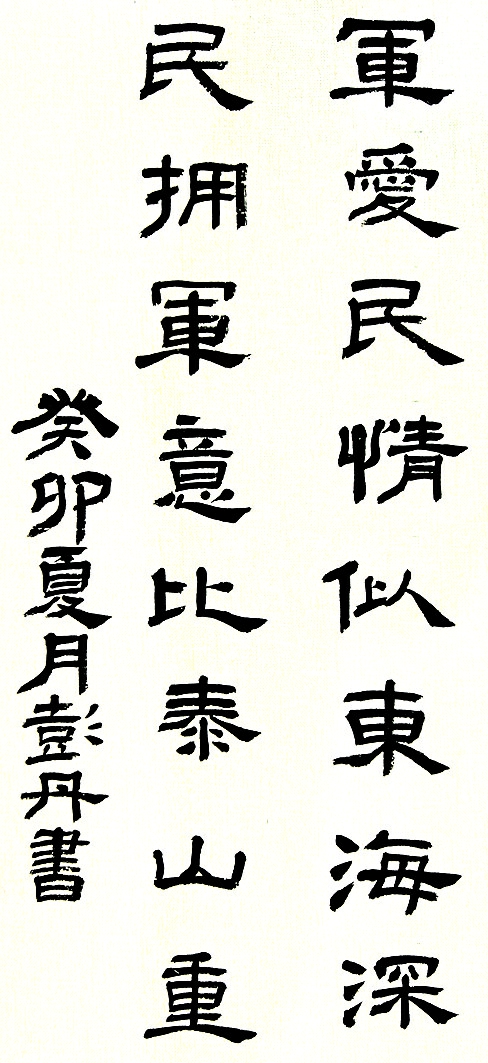 軍愛民情似東海深
民拥軍意比泰山重
癸卯夏月彭丹書